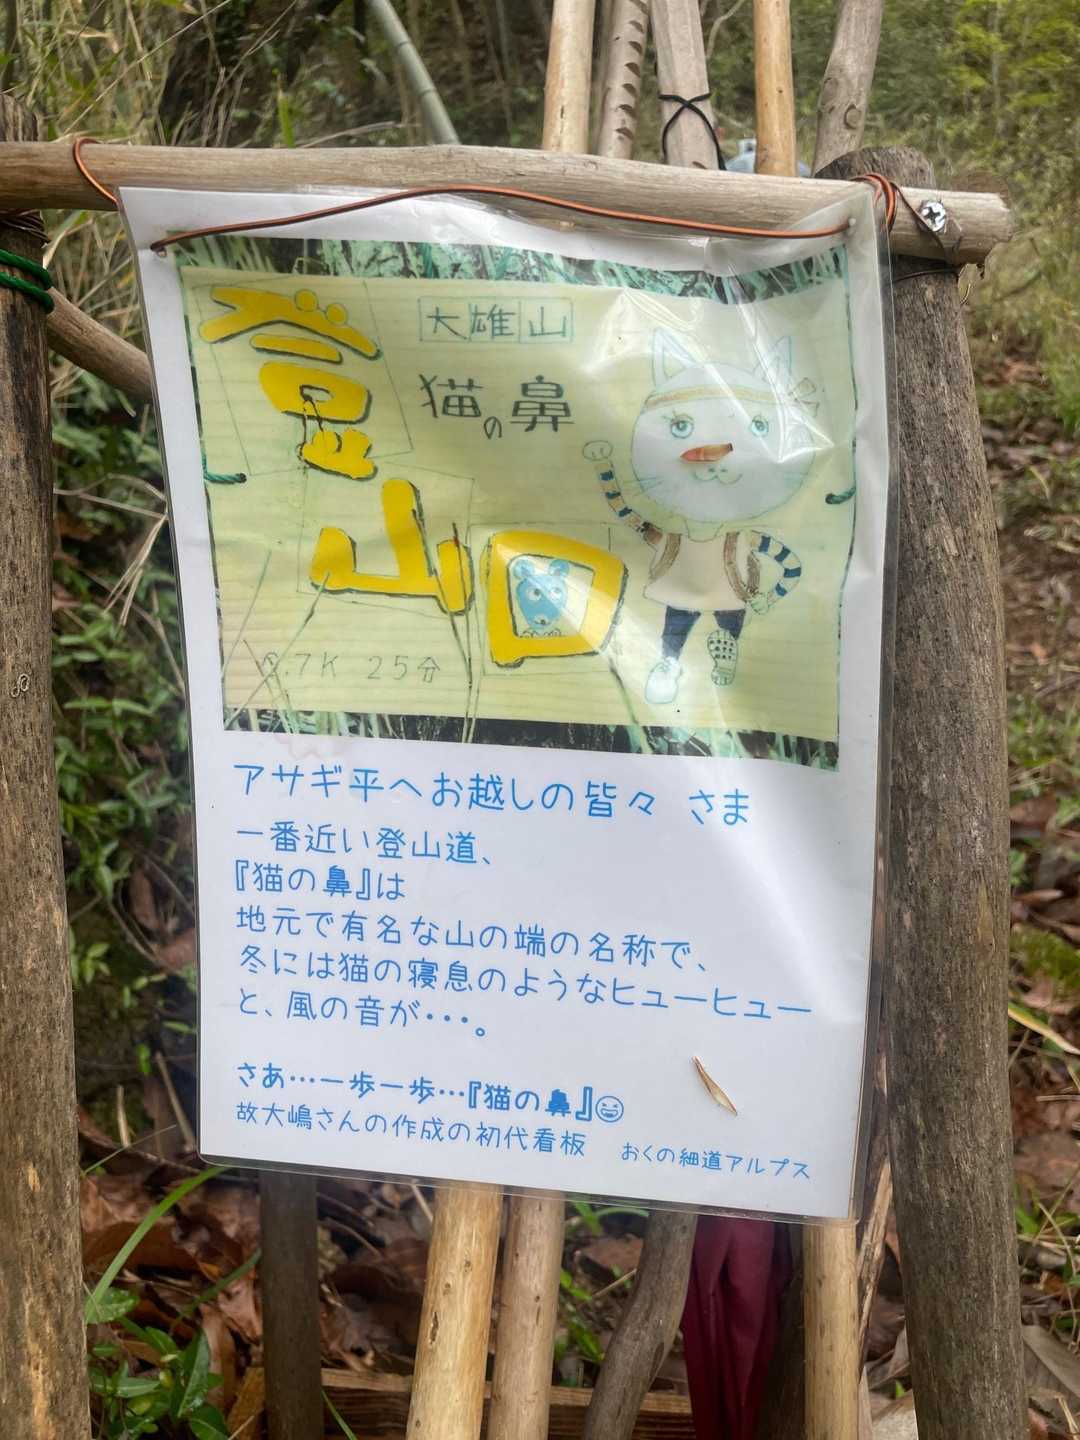 大雄山
猫の鼻
登山口
0.7K 25分
アサギ平へお越しの皆々 さま
一番近い登山道、
『猫の鼻』は
地元で有名な山の端の名称で、
冬には猫の寝息のようなヒューヒュー
と、風の音が・・・。
さあ…一歩一歩…『猫の鼻』😆
故大嶋さんの作成の初代看板
おくの細道アルプス